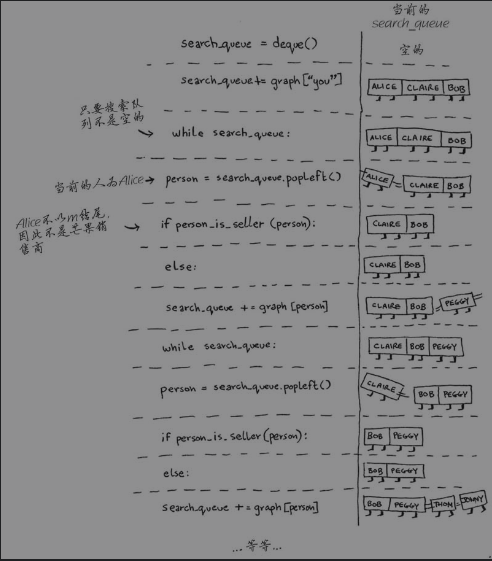 当前的
search_queue
search_queue = deque()
空的
search_queue += graph["you"]
ALICE CLAIRE BOB
只要搜索队
列不是空的
while search_queue:
ALICE CLAIRE BOB
当前的人为Alice
person = search_queue.popleft()
ALICE CLAIRE BOB
Alice不以m结尾,
因此不是芒果销
售商
if person_is_seller (person):
CLAIRE BOB
else:
CLAIRE BOB
search_queue += graph [person]
CLAIRE BOB PEGGY
while search_queue:
CLAIRE BOB PEGGY
person = search_queue.popleft()
CLAIRE BOB PEGGY
if person_is_seller (person):
BOB PEGGY
else:
BOB PEGGY
search_queue += graph [person]
BOB PEGGY THOM JONNY
...等等...